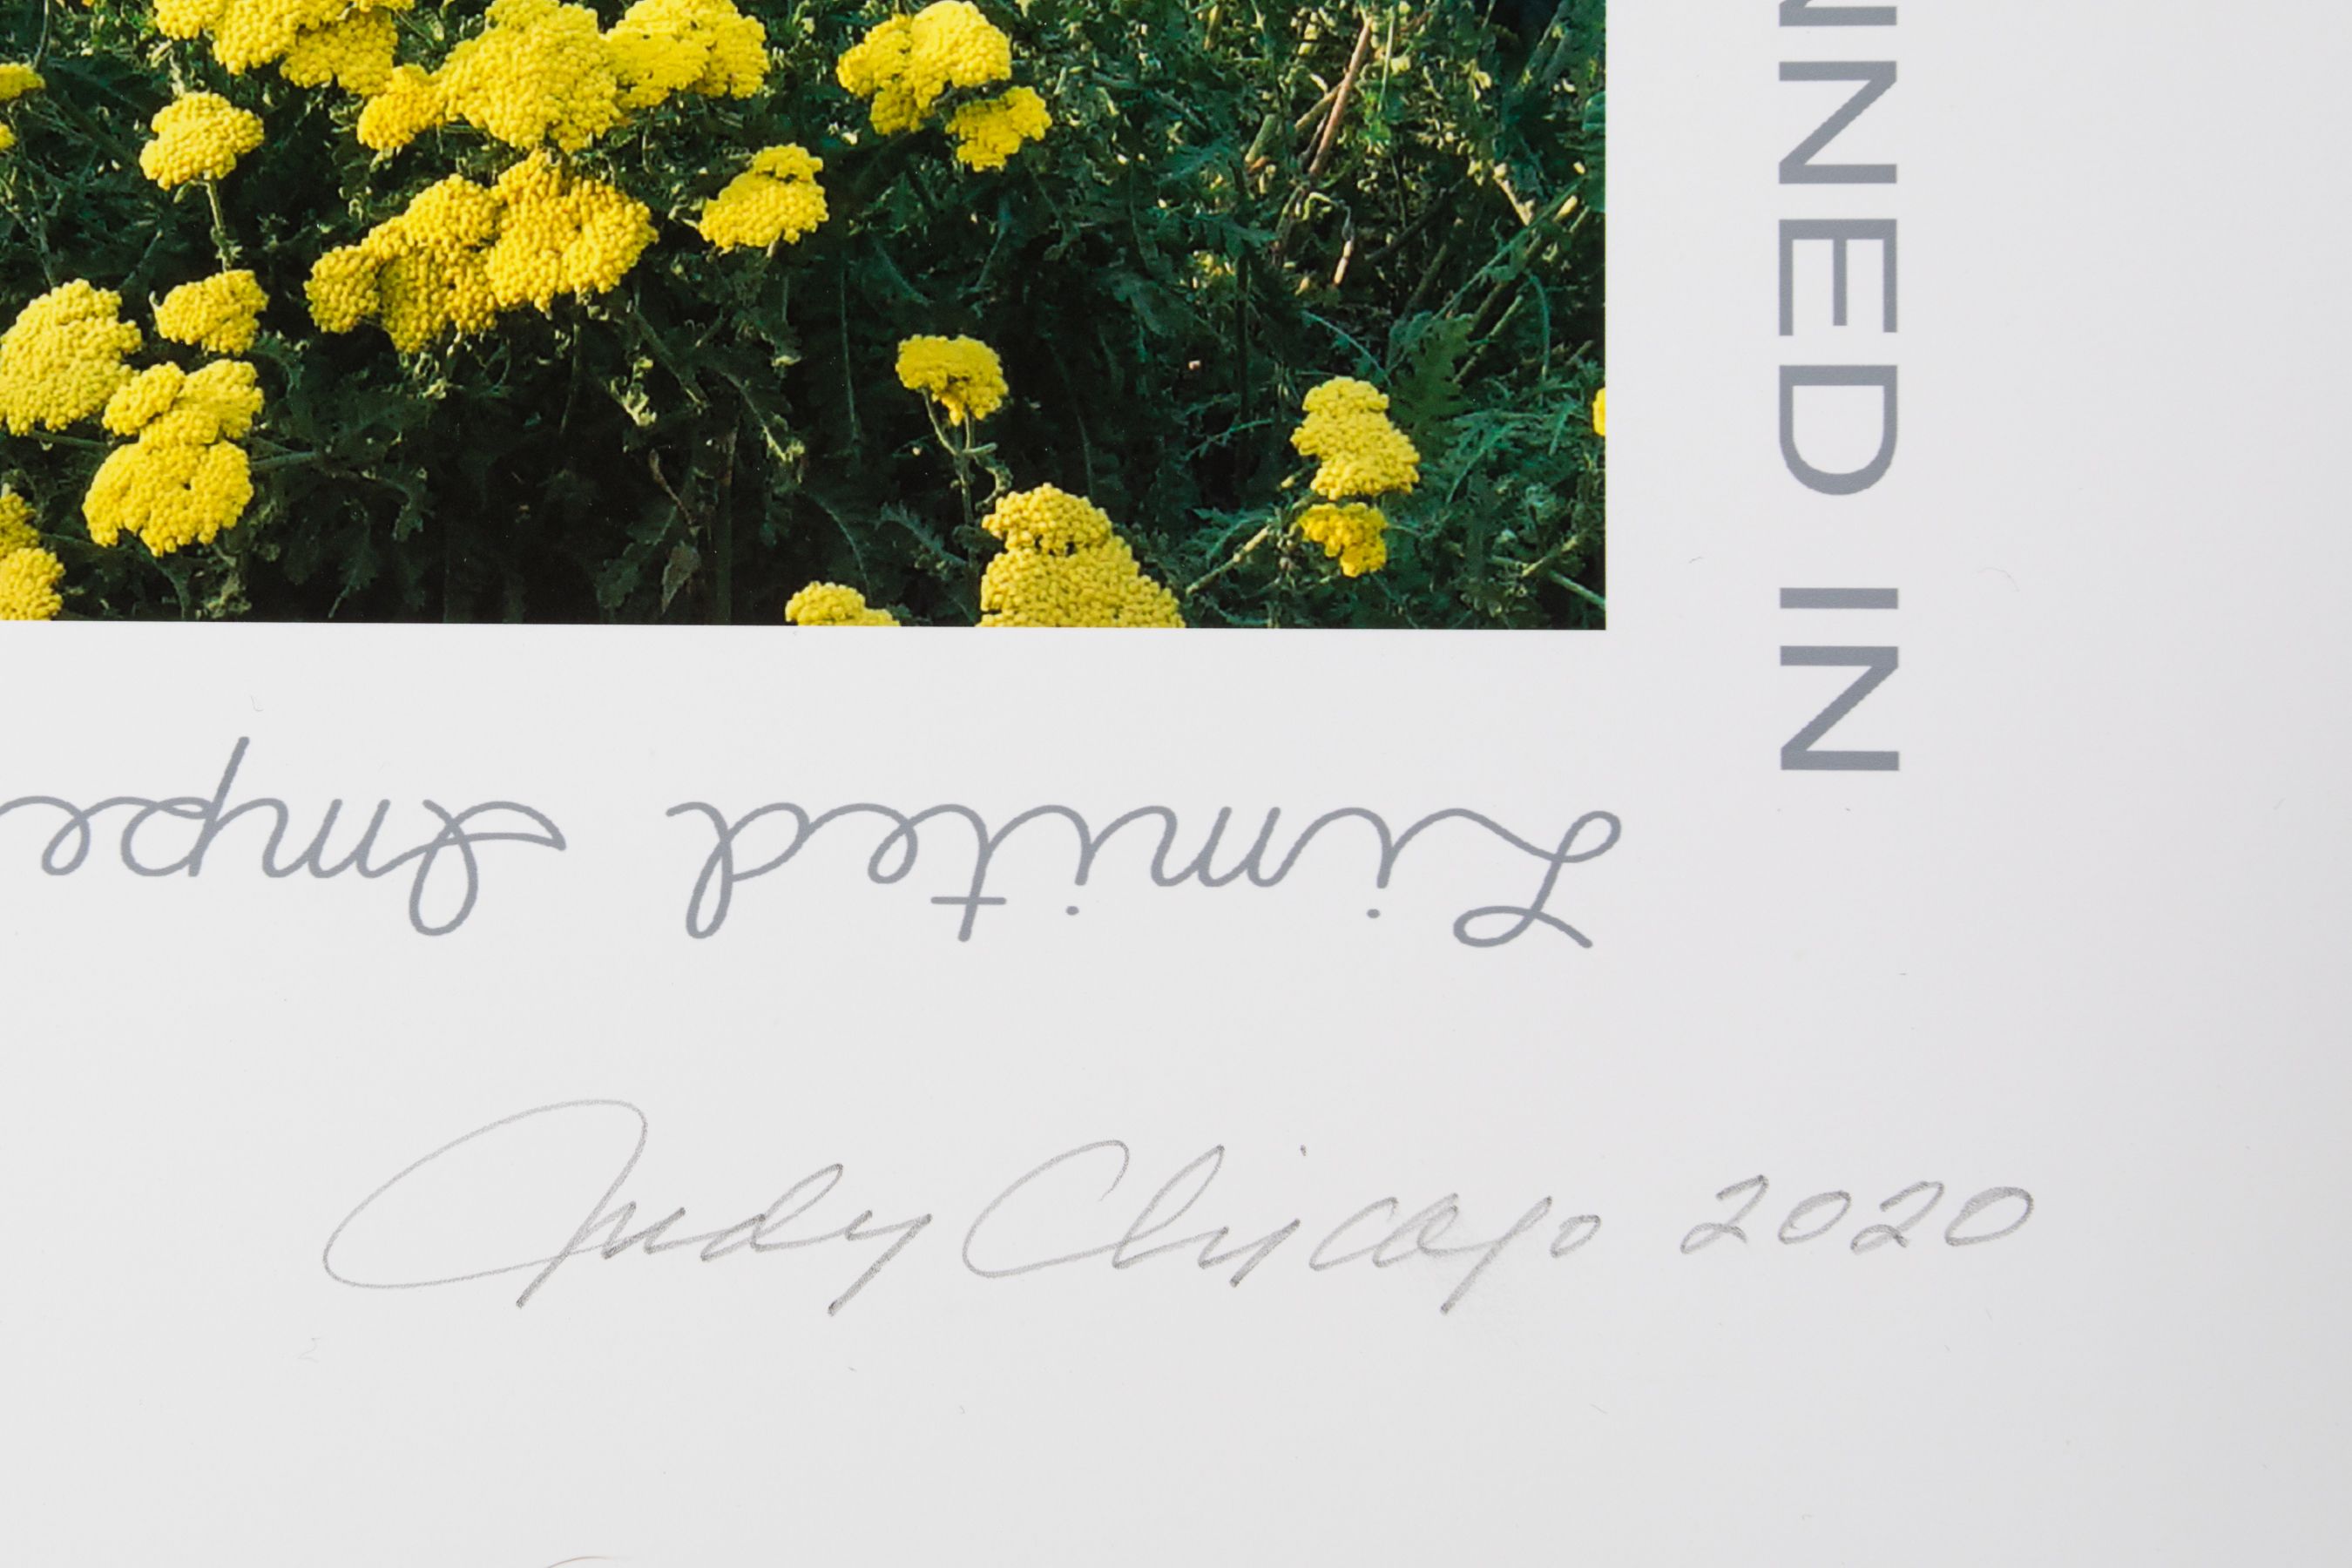 NNED IN
Limited Impe
Judy Chicago 2020